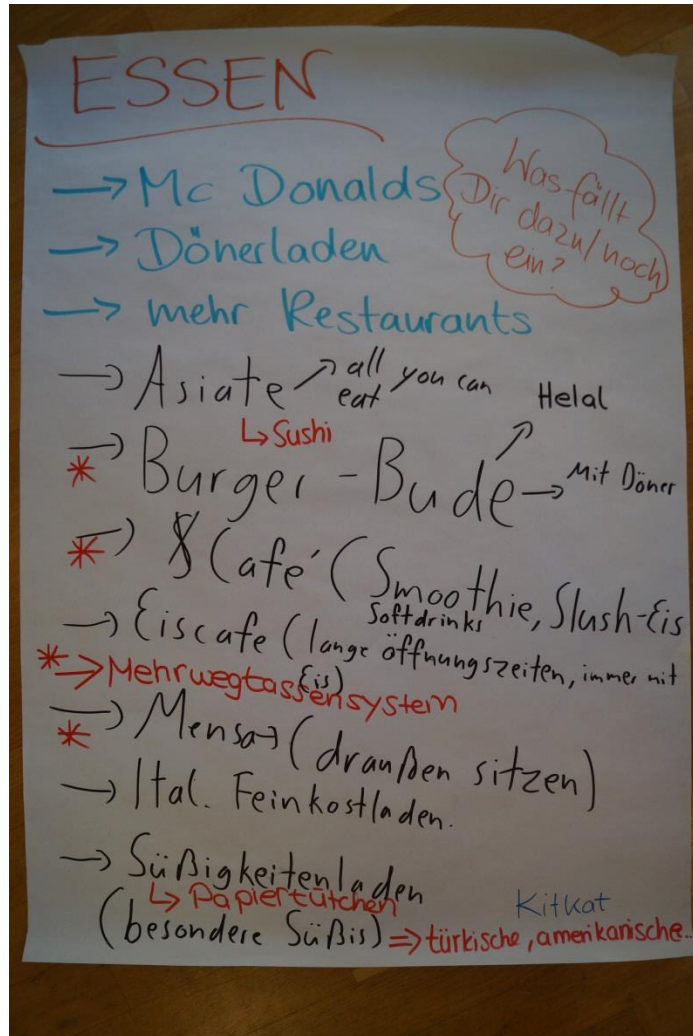 ESSEN
Was fällt
Dir dazu/noch
ein?
→ Mc Donalds
→ Dönerladen
→ mehr Restaurants
→ Asiate ↗ all you can
eat
↳ Sushi
Helal
* → Burger-Bude → Mit Döner
* → Café (Smoothie, Slush-Eis
Softdrinks
→ Eiscafe (lange Öffnungszeiten, immer mit
Eis)
* → Mehrwegtassensystem
* → Mensa → (draußen sitzen)
→ Ital. Feinkostladen.
→ Süßigkeitenladen
↳ Papiertütchen
KitKat
(besondere Süßis) ⇒ türkische, amerikanische...